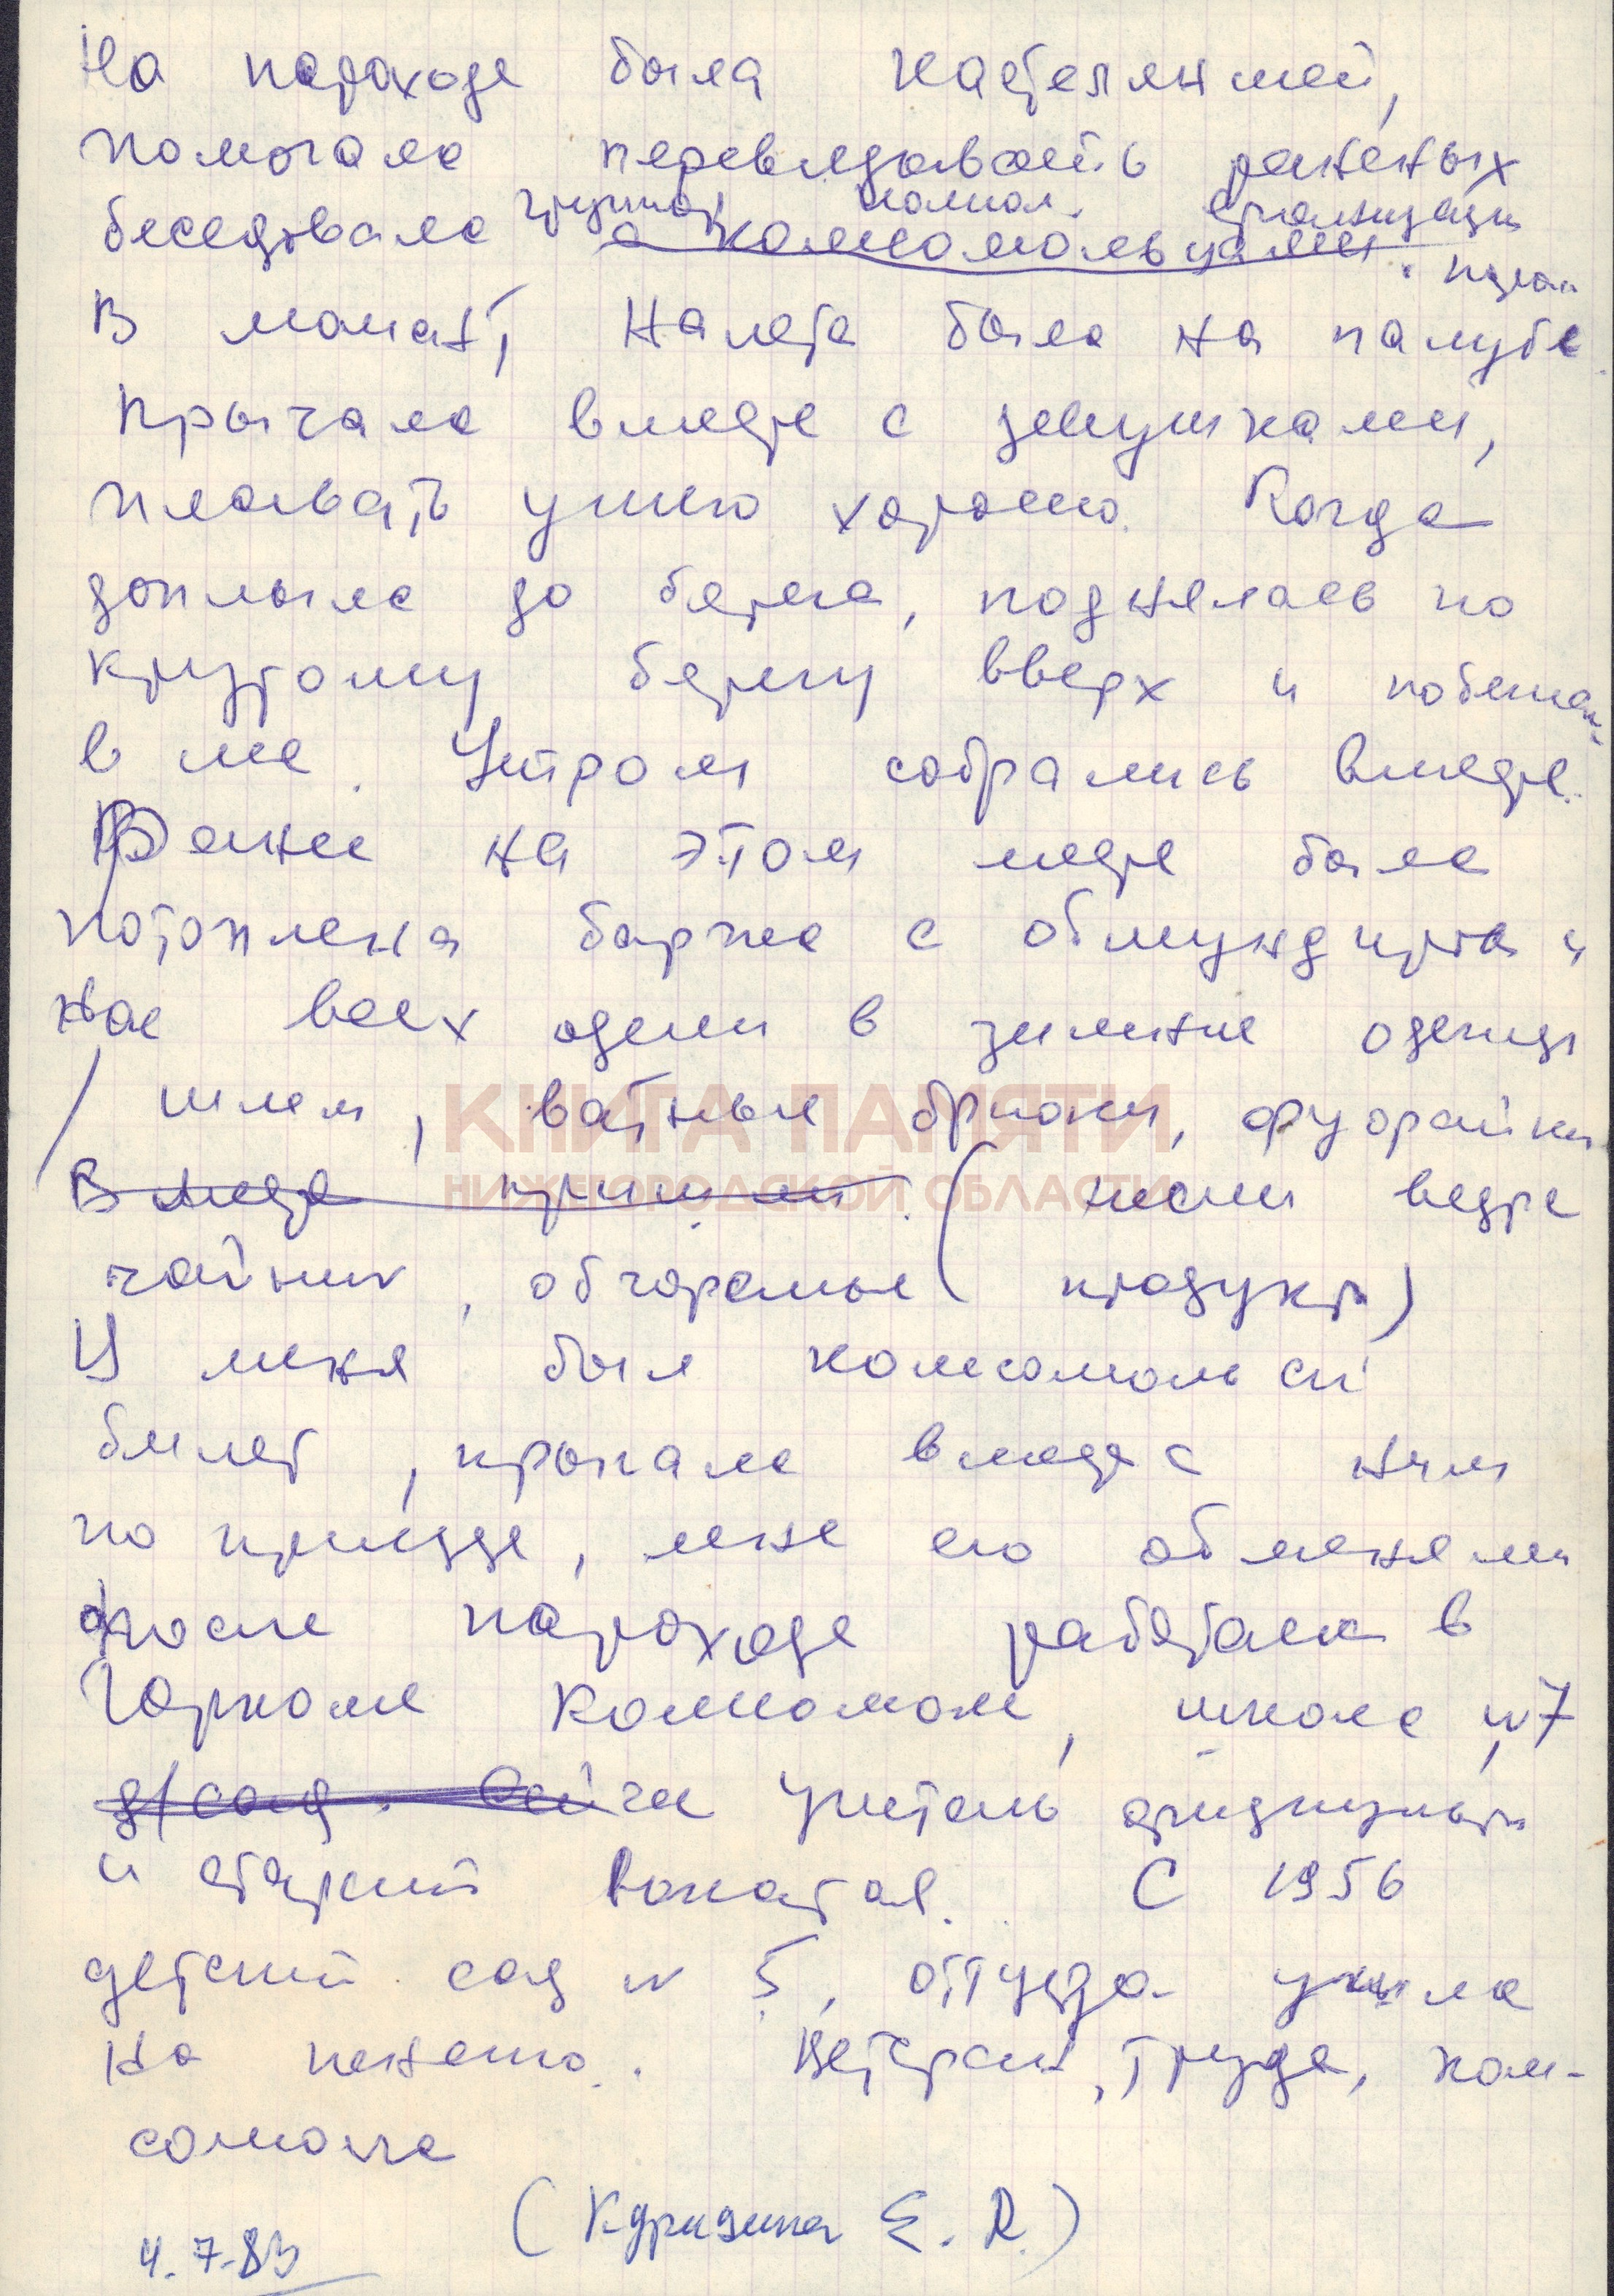 На пароходе была кастеляншей,
помогала перевязывать раненых
беседовала группой комсом. организации
с комсомольцами.
В момент налета была на палубе
Прыгала вместе с девушками,
плавать умею хорошо. Когда
доплыла до берега, поднялась по
крутому берегу вверх и побежал
в лес. Утром собрались вместе.
Ранее на этом месте была
потоплена баржа с обмундиров и
нас всех одели в зимние одежды
/ шлем, ватные брюки, фуфайки
В месте нашли (несли ведра
чайник, обгорелые продукты)
У меня был комсомольск
билет, прыгала вместе с ним
по приезде, мне его обменяли
после парохода работала в
Горкоме Комсомола, школе №7
д/сад. Сейчас учитель
и старший вожатая. С 1956
детский сад № 5, оттуда ушла
на пенсию. Ветеран труда, ком-
сомола
( Е. Д.)
4.7.83
КНИГА ПАМЯТИ
НИЖЕГОРОДСКОЙ ОБЛАСТИ